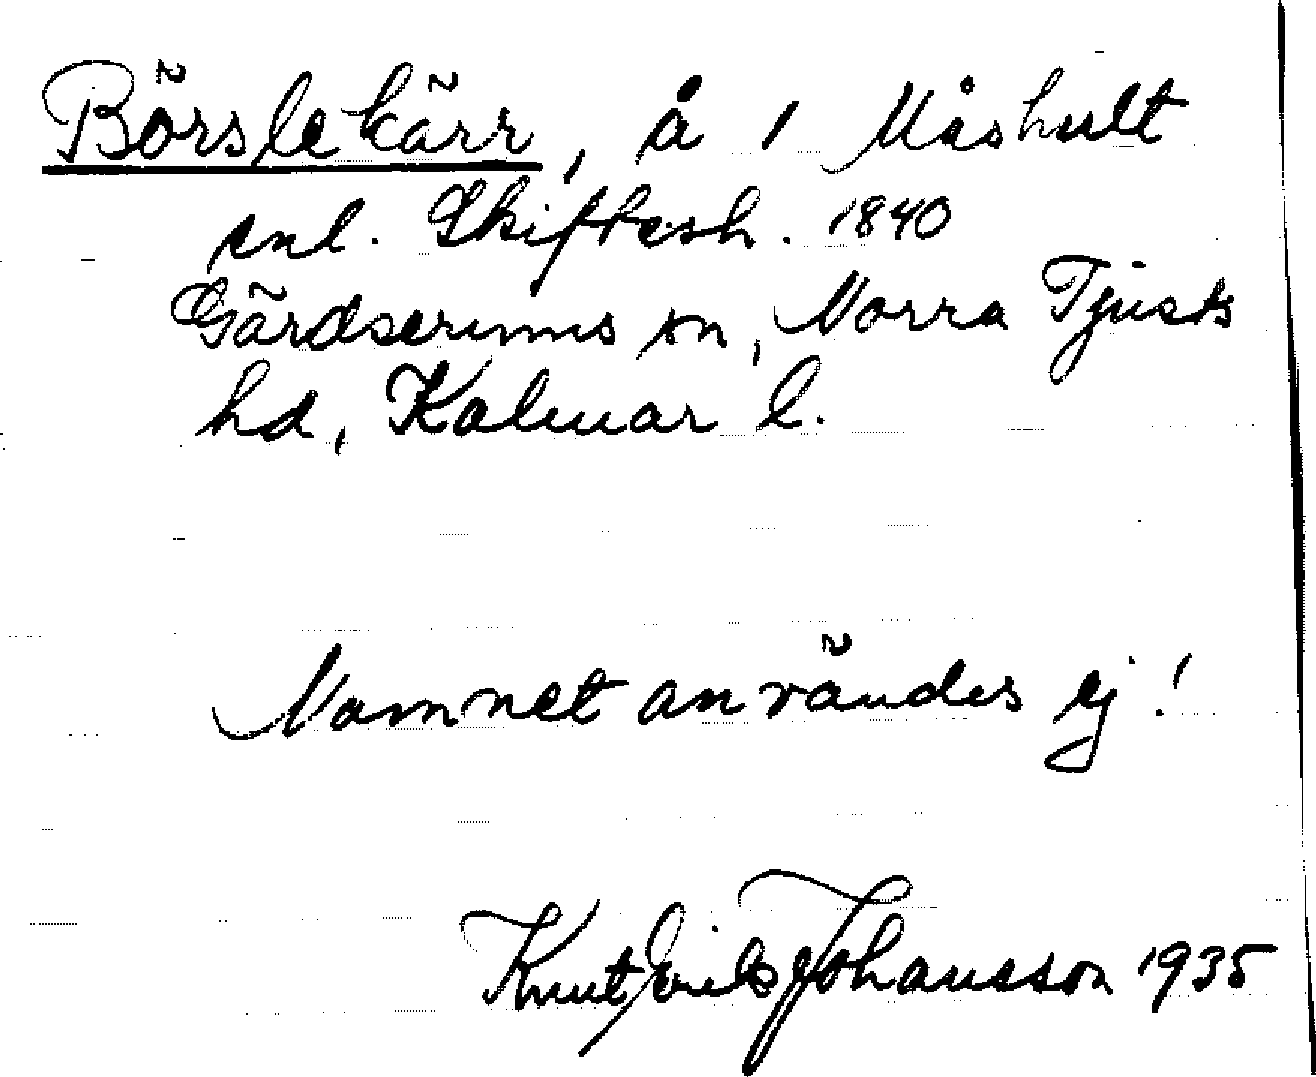 Börslekärr, å 1 Måshult
enl. Skiftesh. 1840
Gärdserums sn, Norra Tjusts
hd, Kalmar l.
Namnet användes ej!
Knut Erik Johansson 1935